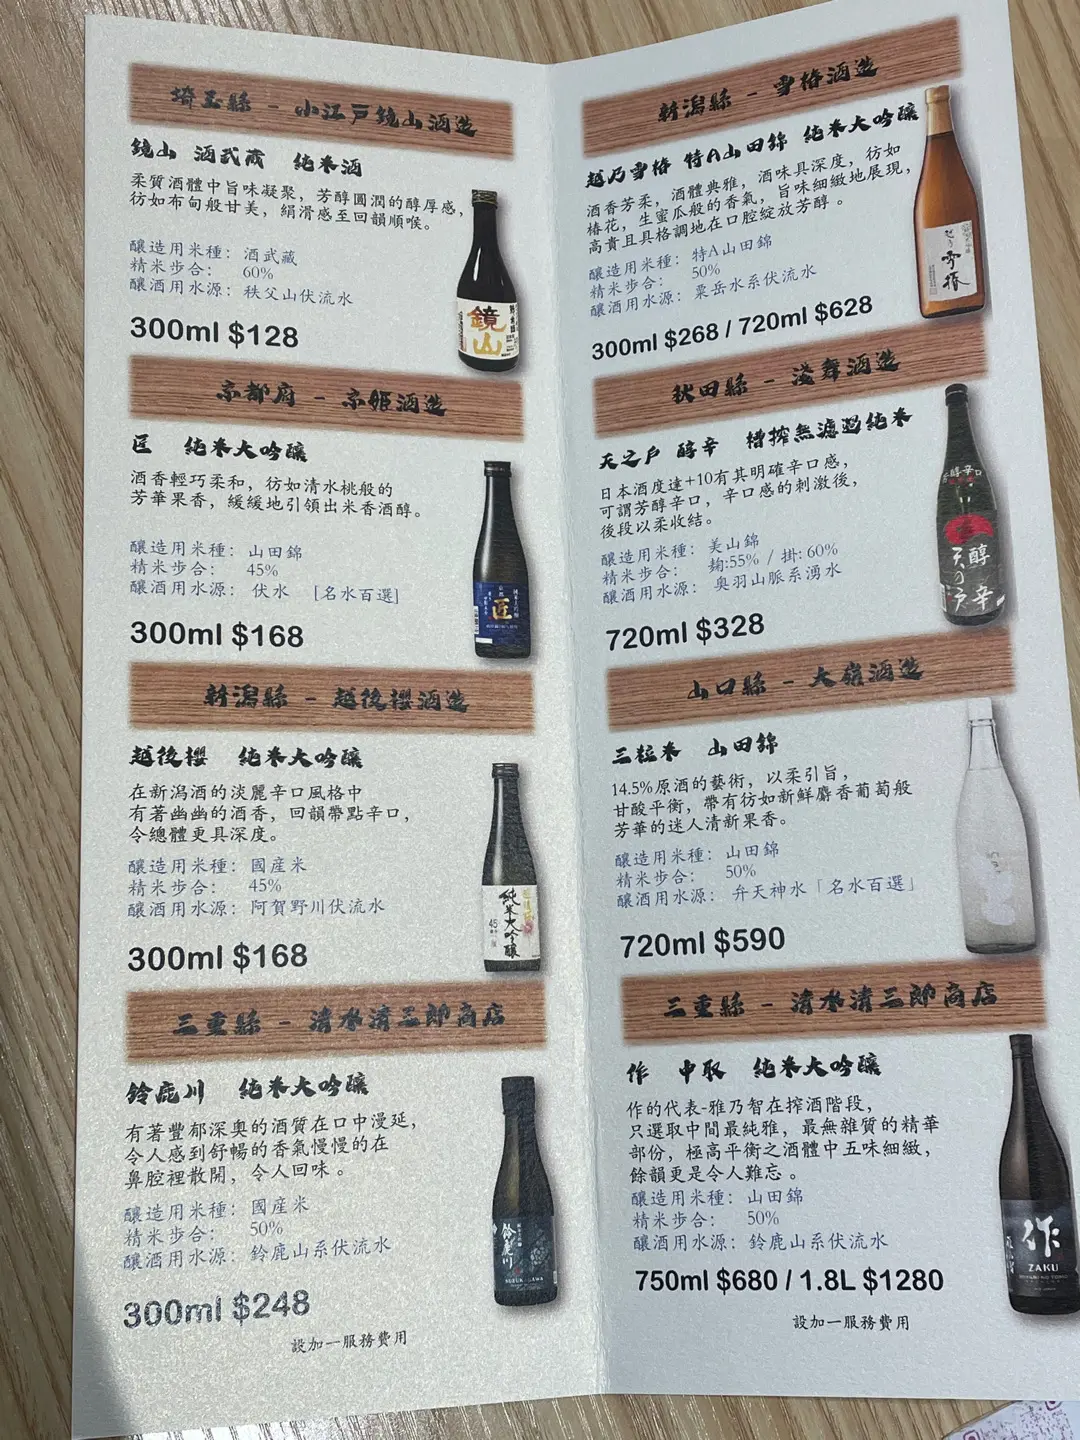 埼玉縣 - 小江戸鏡山酒造
鏡山 酒武蔵 純米酒
柔質酒體中旨味凝聚，芳醇圓潤的醇厚感，
彷如布甸般甘美，絹滑感至回韻順喉。
釀造用米種： 酒武藏
精米步合： 60%
釀酒用水源： 秩父山伏流水
300ml $128
鏡山
京都府 - 京姫酒造
匠 純米大吟釀
酒香輕巧柔和，彷如清水桃般的
芳華果香，緩緩地引領出米香酒醇。
釀造用米種： 山田錦
精米步合： 45%
釀酒用水源： 伏水 [名水百選]
300ml $168
匠
新潟縣 - 越後櫻酒造
越後櫻 純米大吟釀
在新潟酒的淡麗辛口風格中
有著幽幽的酒香，回韻帶點辛口，
令總體更具深度。
釀造用米種： 國産米
精米步合： 45%
釀酒用水源： 阿賀野川伏流水
300ml $168
純米大吟醸
三重縣 - 清水清三郎商店
鈴鹿川 純米大吟釀
有著豐郁深奧的酒質在口中漫延，
令人感到舒暢的香氣慢慢的在
鼻腔裡散開，令人回味。
釀造用米種： 國産米
精米步合： 50%
釀酒用水源： 鈴鹿山系伏流水
300ml $248
鈴鹿川
設加一服務費用
新潟縣 - 雪椿酒造
越乃雪椿 特A山田錦 純米大吟釀
酒香芳柔，酒體典雅，酒味具深度，彷如
椿花，生蜜瓜般的香氣，旨味細緻地展現，
高貴且具格調地在口腔綻放芳醇。
釀造用米種： 特A山田錦
精米步合： 50%
釀酒用水源： 粟岳水系伏流水
300ml $268 / 720ml $628
雪椿
秋田縣 - 淺舞酒造
天之戶 醇辛 槽搾無濾過純米
日本酒度達+10有其明確辛口感，
可謂芳醇辛口，辛口感的刺激後，
後段以柔收結。
釀造用米種： 美山錦
精米步合： 麹:55% / 掛:60%
釀酒用水源： 奥羽山脈系湧水
720ml $328
醇辛
天の戸
山口縣 - 大嶺酒造
三粒米 山田錦
14.5%原酒的藝術，以柔引旨，
甘酸平衡，帶有彷如新鮮麝香葡萄般
芳華的迷人清新果香。
釀造用米種： 山田錦
精米步合： 50%
釀酒用水源： 弁天神水「名水百選」
720ml $590
三重縣 - 清水清三郎商店
作 中取 純米大吟釀
作的代表-雅乃智在搾酒階段，
只選取中間最純雅，最無雜質的精華
部份，極高平衡之酒體中五味細緻，
餘韻更是令人難忘。
釀造用米種： 山田錦
精米步合： 50%
釀酒用水源： 鈴鹿山系伏流水
750ml $680 / 1.8L $1280
作
ZAKU
設加一服務費用